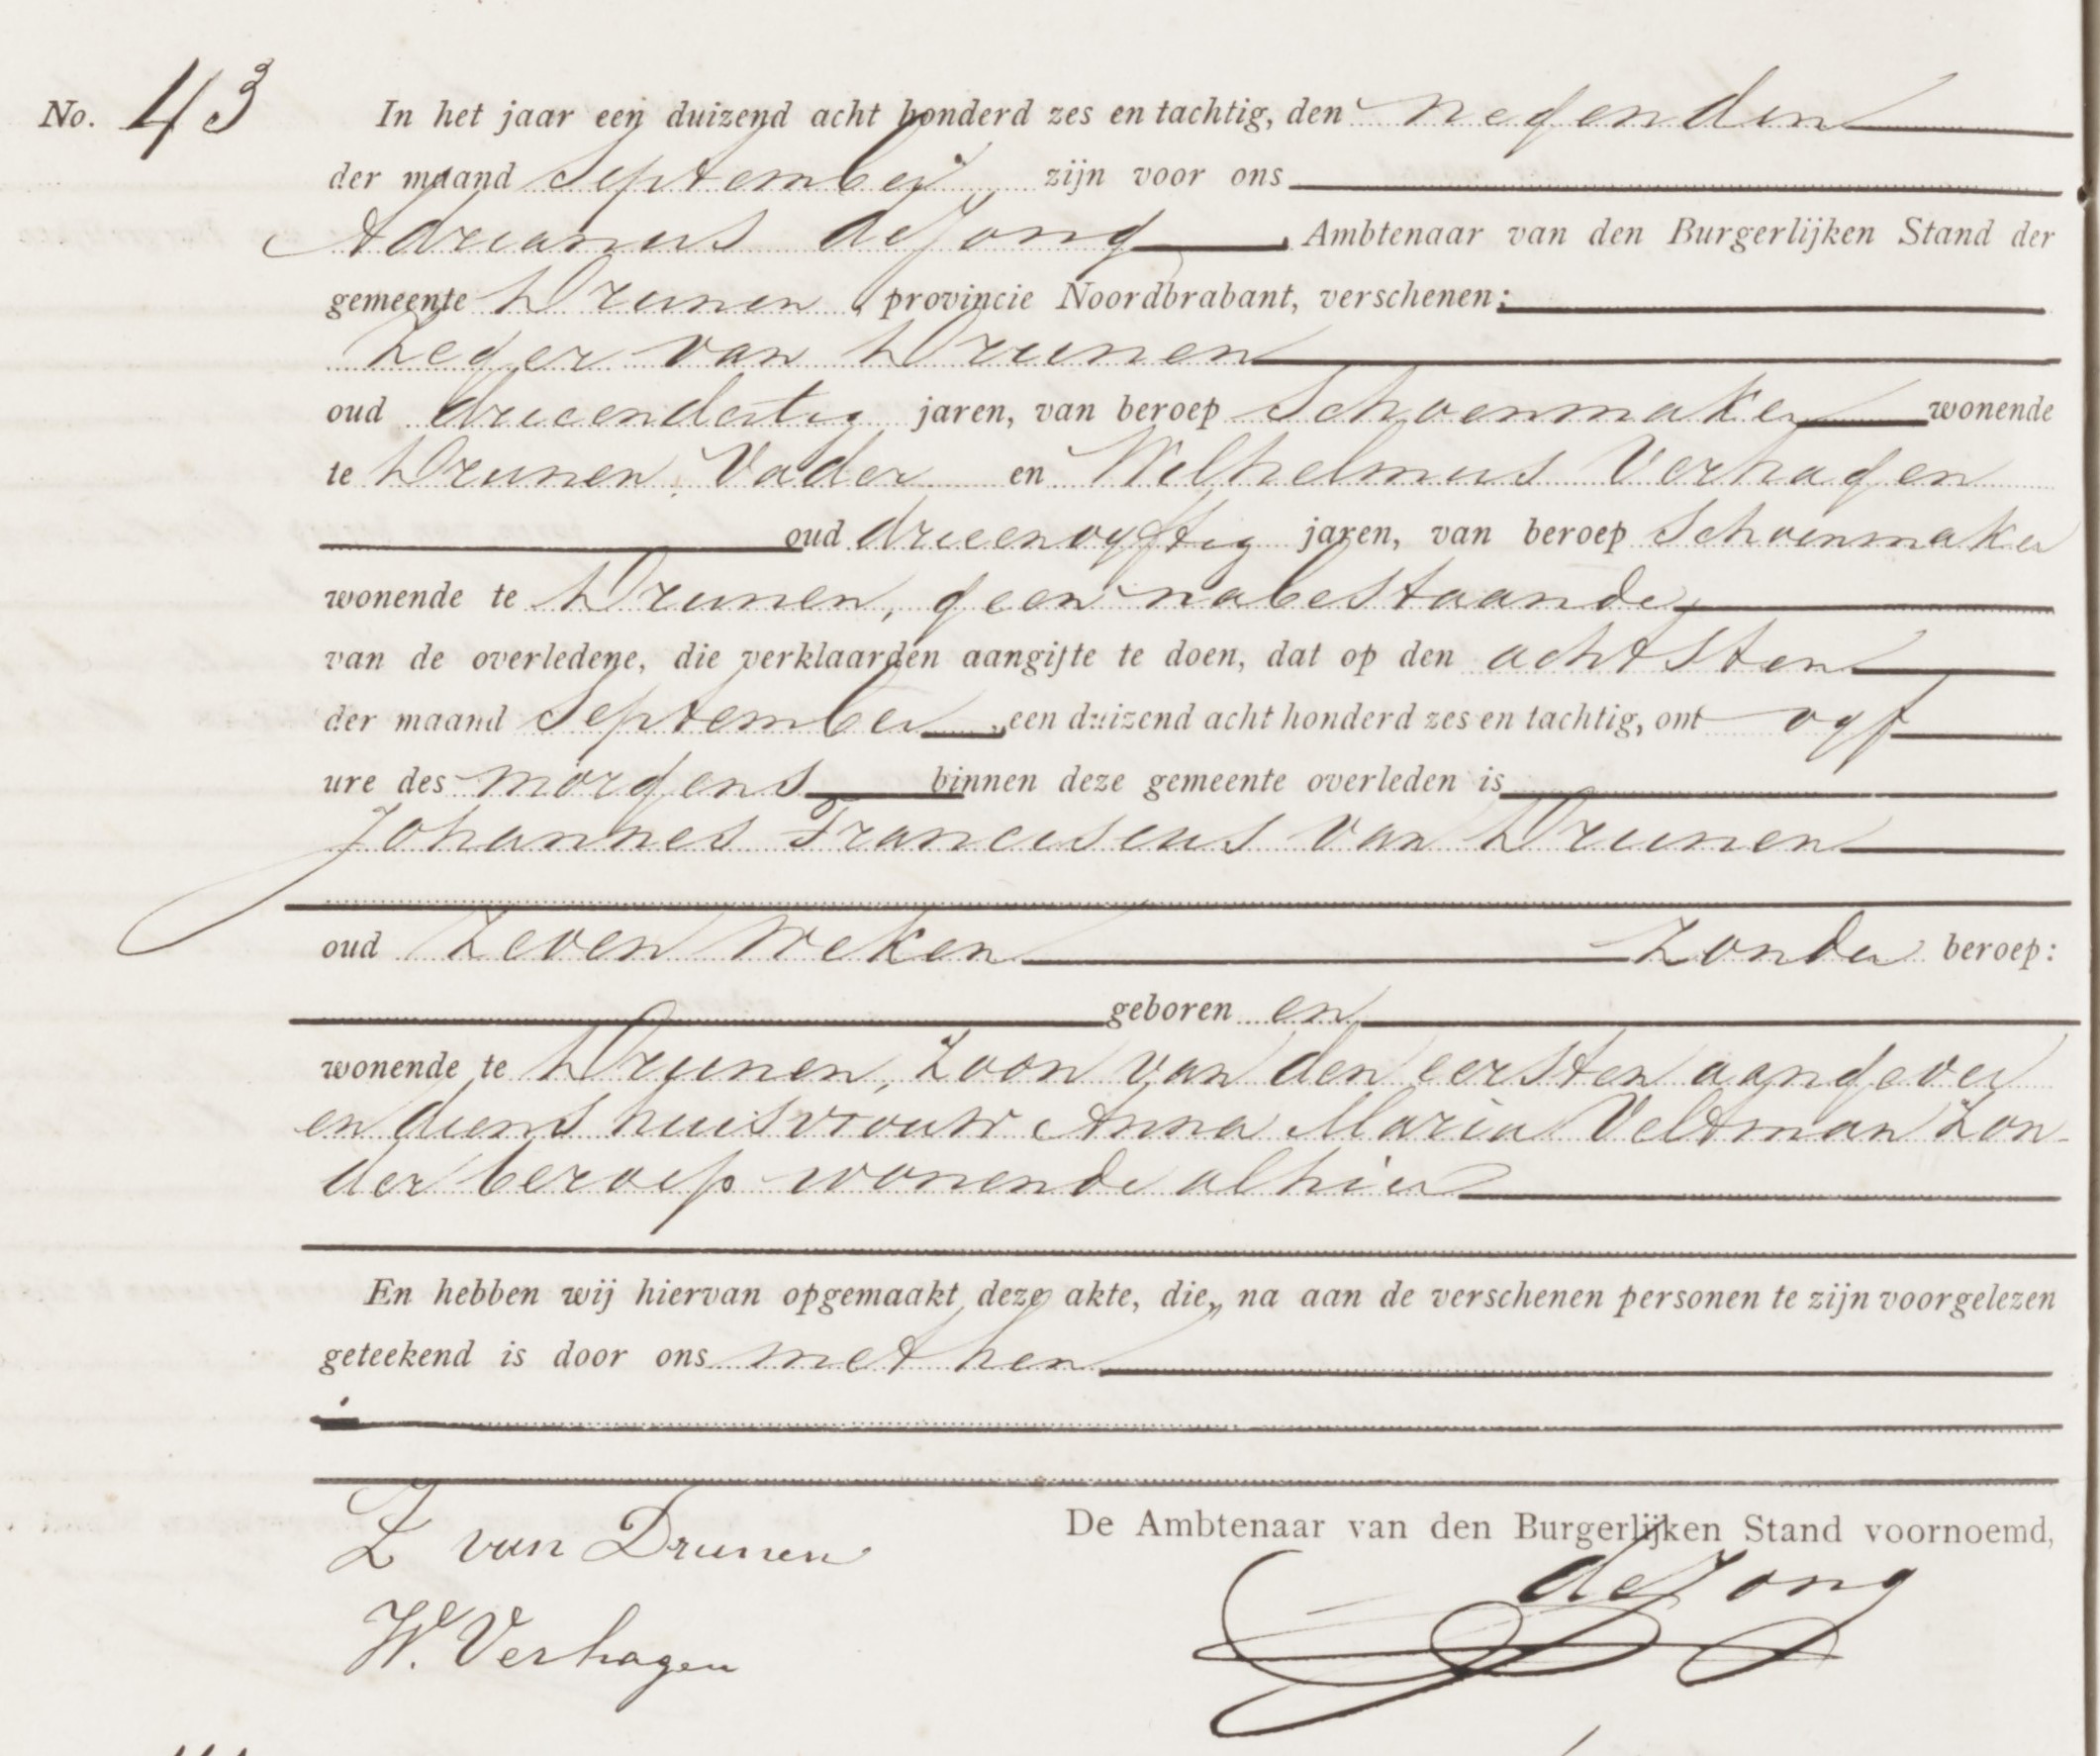 No. 43 In het jaar een duizend acht honderd zes en tachtig, den negenden
der maand September zijn voor ons
Adrianus de Jong, Ambtenaar van den Burgerlijken Stand der
gemeente Drunen, provincie Noordbrabant, verschenen:
Zeger van Drunen
oud drieendertig jaren, van beroep Schoenmaker wonende
te Drunen, Vader en Wilhelmus Verhagen
oud drieenvyftig jaren, van beroep Schoenmaker
wonende te Drunen, geen nabestaande
van de overledene, die verklaarden aangifte te doen, dat op den achtsten
der maand September, een duizend acht honderd zes en tachtig, om vyf
ure des morgens binnen deze gemeente overleden is
Johannes Franciscus van Drunen
oud Zeven weken Zonder beroep:
geboren en
wonende te Drunen, Zoon van den eersten aangever
en diens huisvrouw Anna Maria Veltman Zon-
der beroep wonende alhier
En hebben wij hiervan opgemaakt deze akte, die, na aan de verschenen personen te zijn voorgelezen
geteekend is door ons met hen
De Ambtenaar van den Burgerlijken Stand voornoemd,
Z van Drunen
de Jong
W. Verhagen